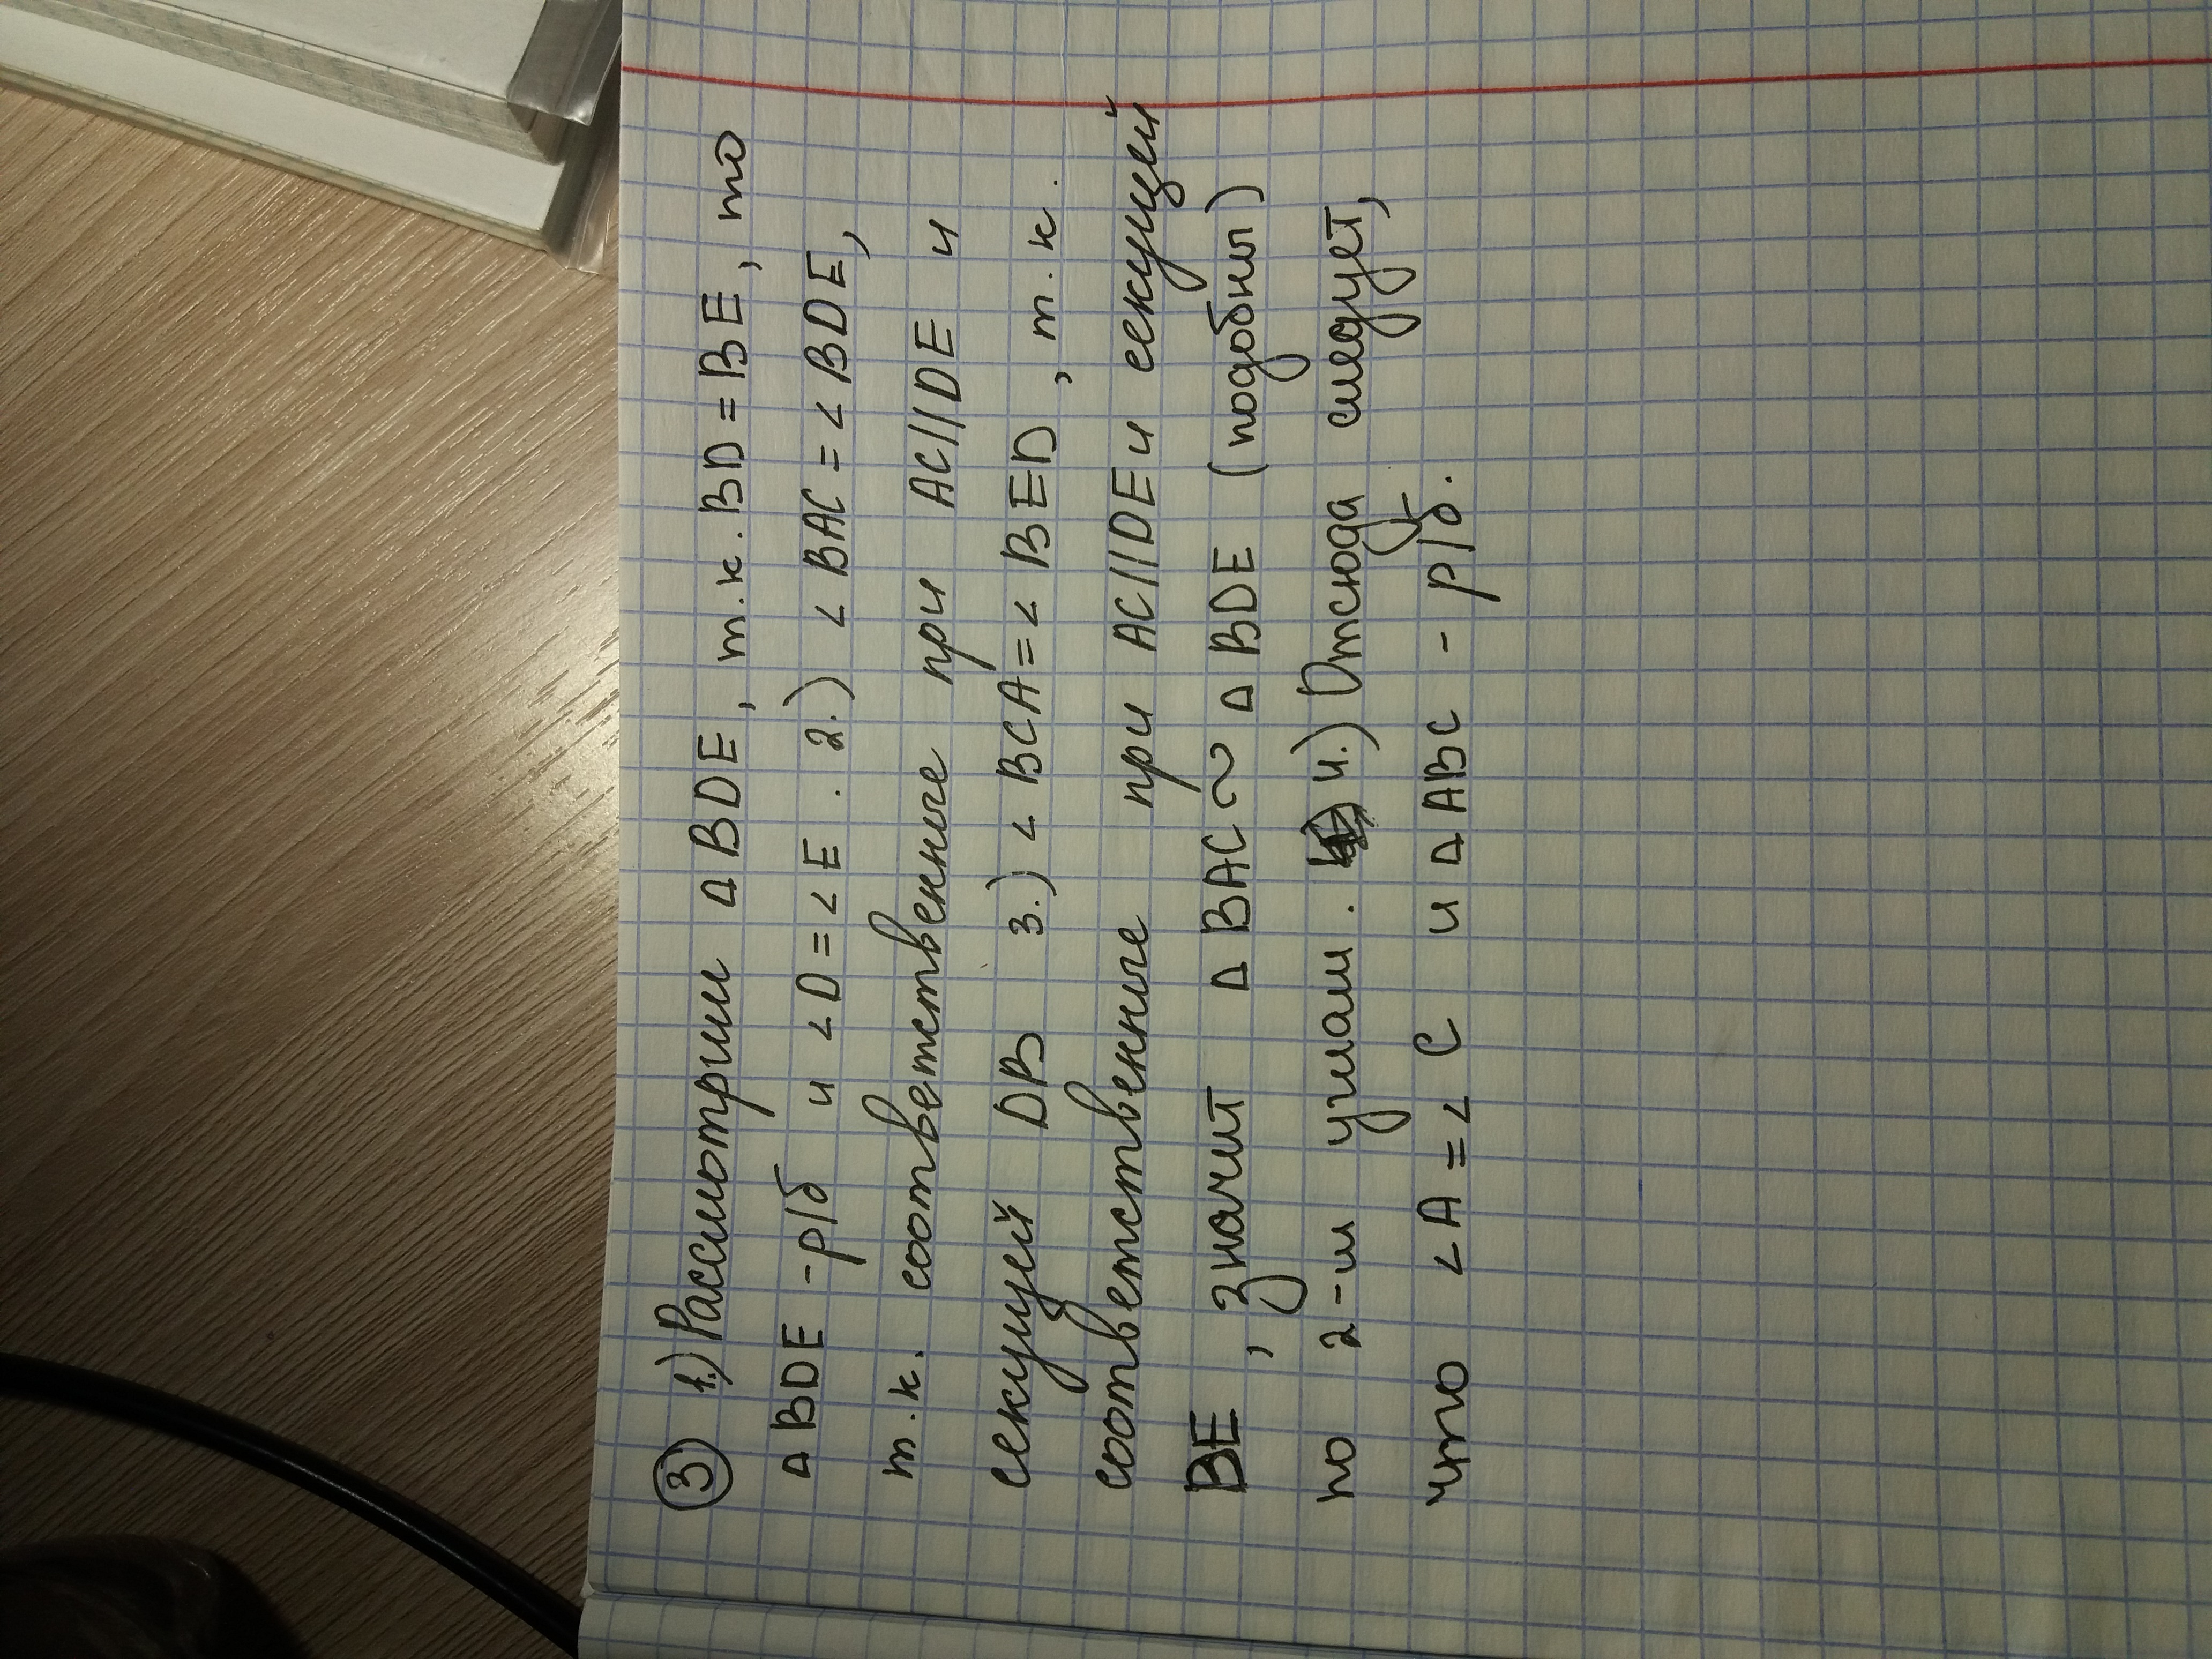 ③ 1.) Рассмотрим △BDE, т.к. BD = BE, то
△BDE - р/б и ∠D = ∠E. 2.) ∠BAC = ∠BDE,
т.к. соответственные при AC//DE и
секущей DB 3.) ∠BCA = ∠BED, т.к.
соответственные при AC//DE и секущей
BE, значит △BAC ~ △BDE (подобны)
по 2-м углам. 4.) Отсюда следует,
что ∠A = ∠C и △ABC - р/б.